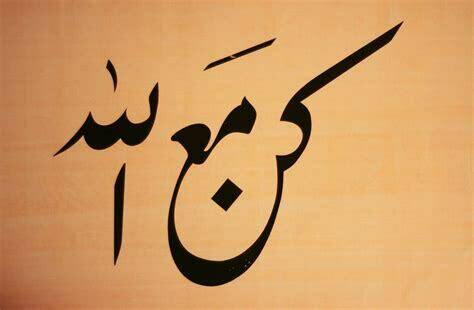 كن مَع الله